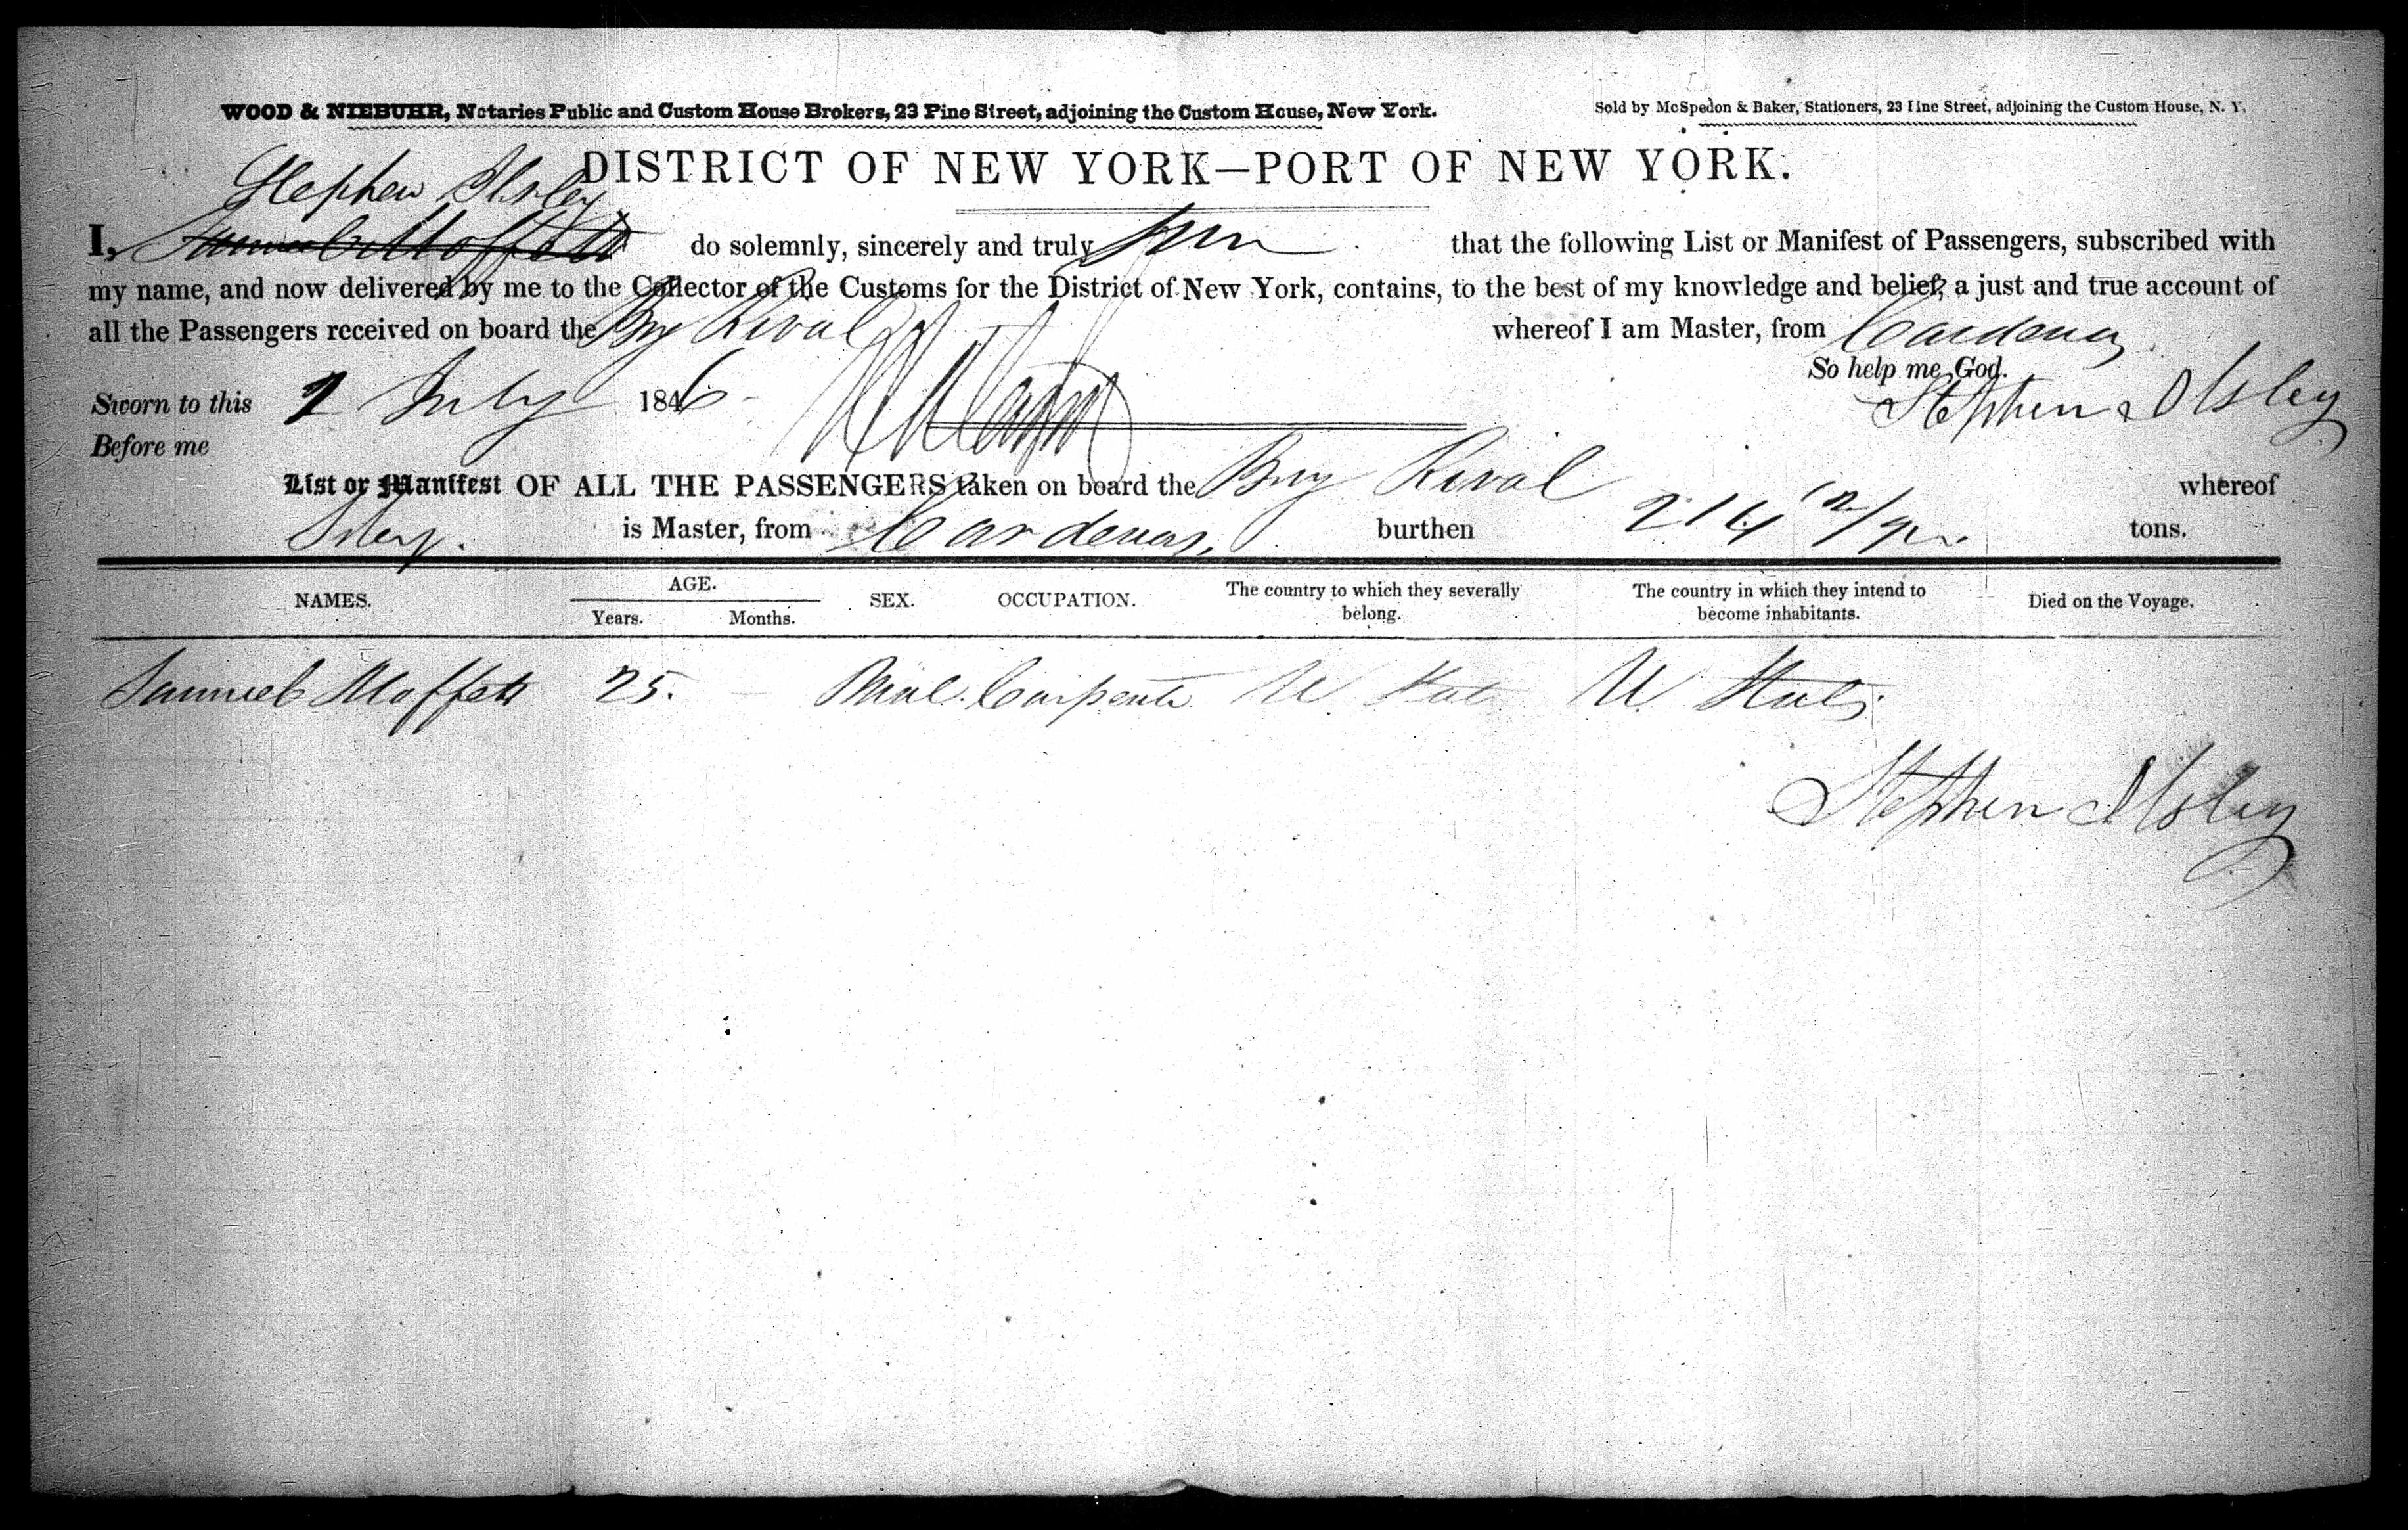 WOOD & NIEBUHR, Notaries Public and Custom House Brokers, 23 Pine Street, adjoining the Custom House, New York.
Sold by McSpedon & Baker, Stationers, 23 Pine Street, adjoining the Custom House, N. Y.
DISTRICT OF NEW YORK—PORT OF NEW YORK.
Stephen Ilsley
I, Samuel Moffett do solemnly, sincerely and truly that the following List or Manifest of Passengers, subscribed with
my name, and now delivered by me to the Collector of the Customs for the District of New York, contains, to the best of my knowledge and belief, a just and true account of
all the Passengers received on board the Brig Rival whereof I am Master, from Cardenas
So help me God.
Sworn to this 2 July 1846
Stephen Ilsley
Before me
List or Manifest OF ALL THE PASSENGERS taken on board the Brig Rival whereof
Ilsley is Master, from Cardenas, burthen 214 tons.
NAMES. AGE. Years. Months. SEX. OCCUPATION. The country to which they severally belong. The country in which they intend to become inhabitants. Died on the Voyage.
Samuel Moffett 25. Male Carpenter U. States U States
Stephen Ilsley